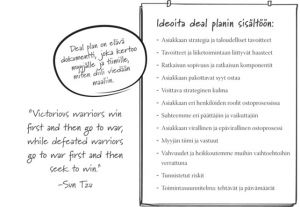 Deal plan on elävä
dokumentti, joka kertoo
myyjälle ja tiimille,
miten diili viedään
maaliin.
"Victorious warriors win
first and then go to war,
while defeated warriors
go to war first and then
seek to win."
–Sun Tzu
Ideoita deal planin sisältöön:
- Asiakkaan strategia ja taloudelliset tavoitteet
- Tavoitteet ja liiketoimintaan liittyvät haasteet
- Ratkaisun sopivuus ja ratkaisun komponentit
- Asiakkaan pakottavat syyt ostaa
- Voittava strateginen kulma
- Asiakkaan eri henkilöiden roolit ostoprosessissa
- Suhteemme eri päättäjiin ja vaikuttajiin
- Asiakkaan virallinen ja epävirallinen ostoprosessi
- Myyjän tiimi ja vastuut
- Vahvuudet ja heikkoutemme muihin vaihtoehtoihin
verrattuna
- Tunnistetut riskit
- Toimintasuunnitelma: tehtävät ja päivämäärät